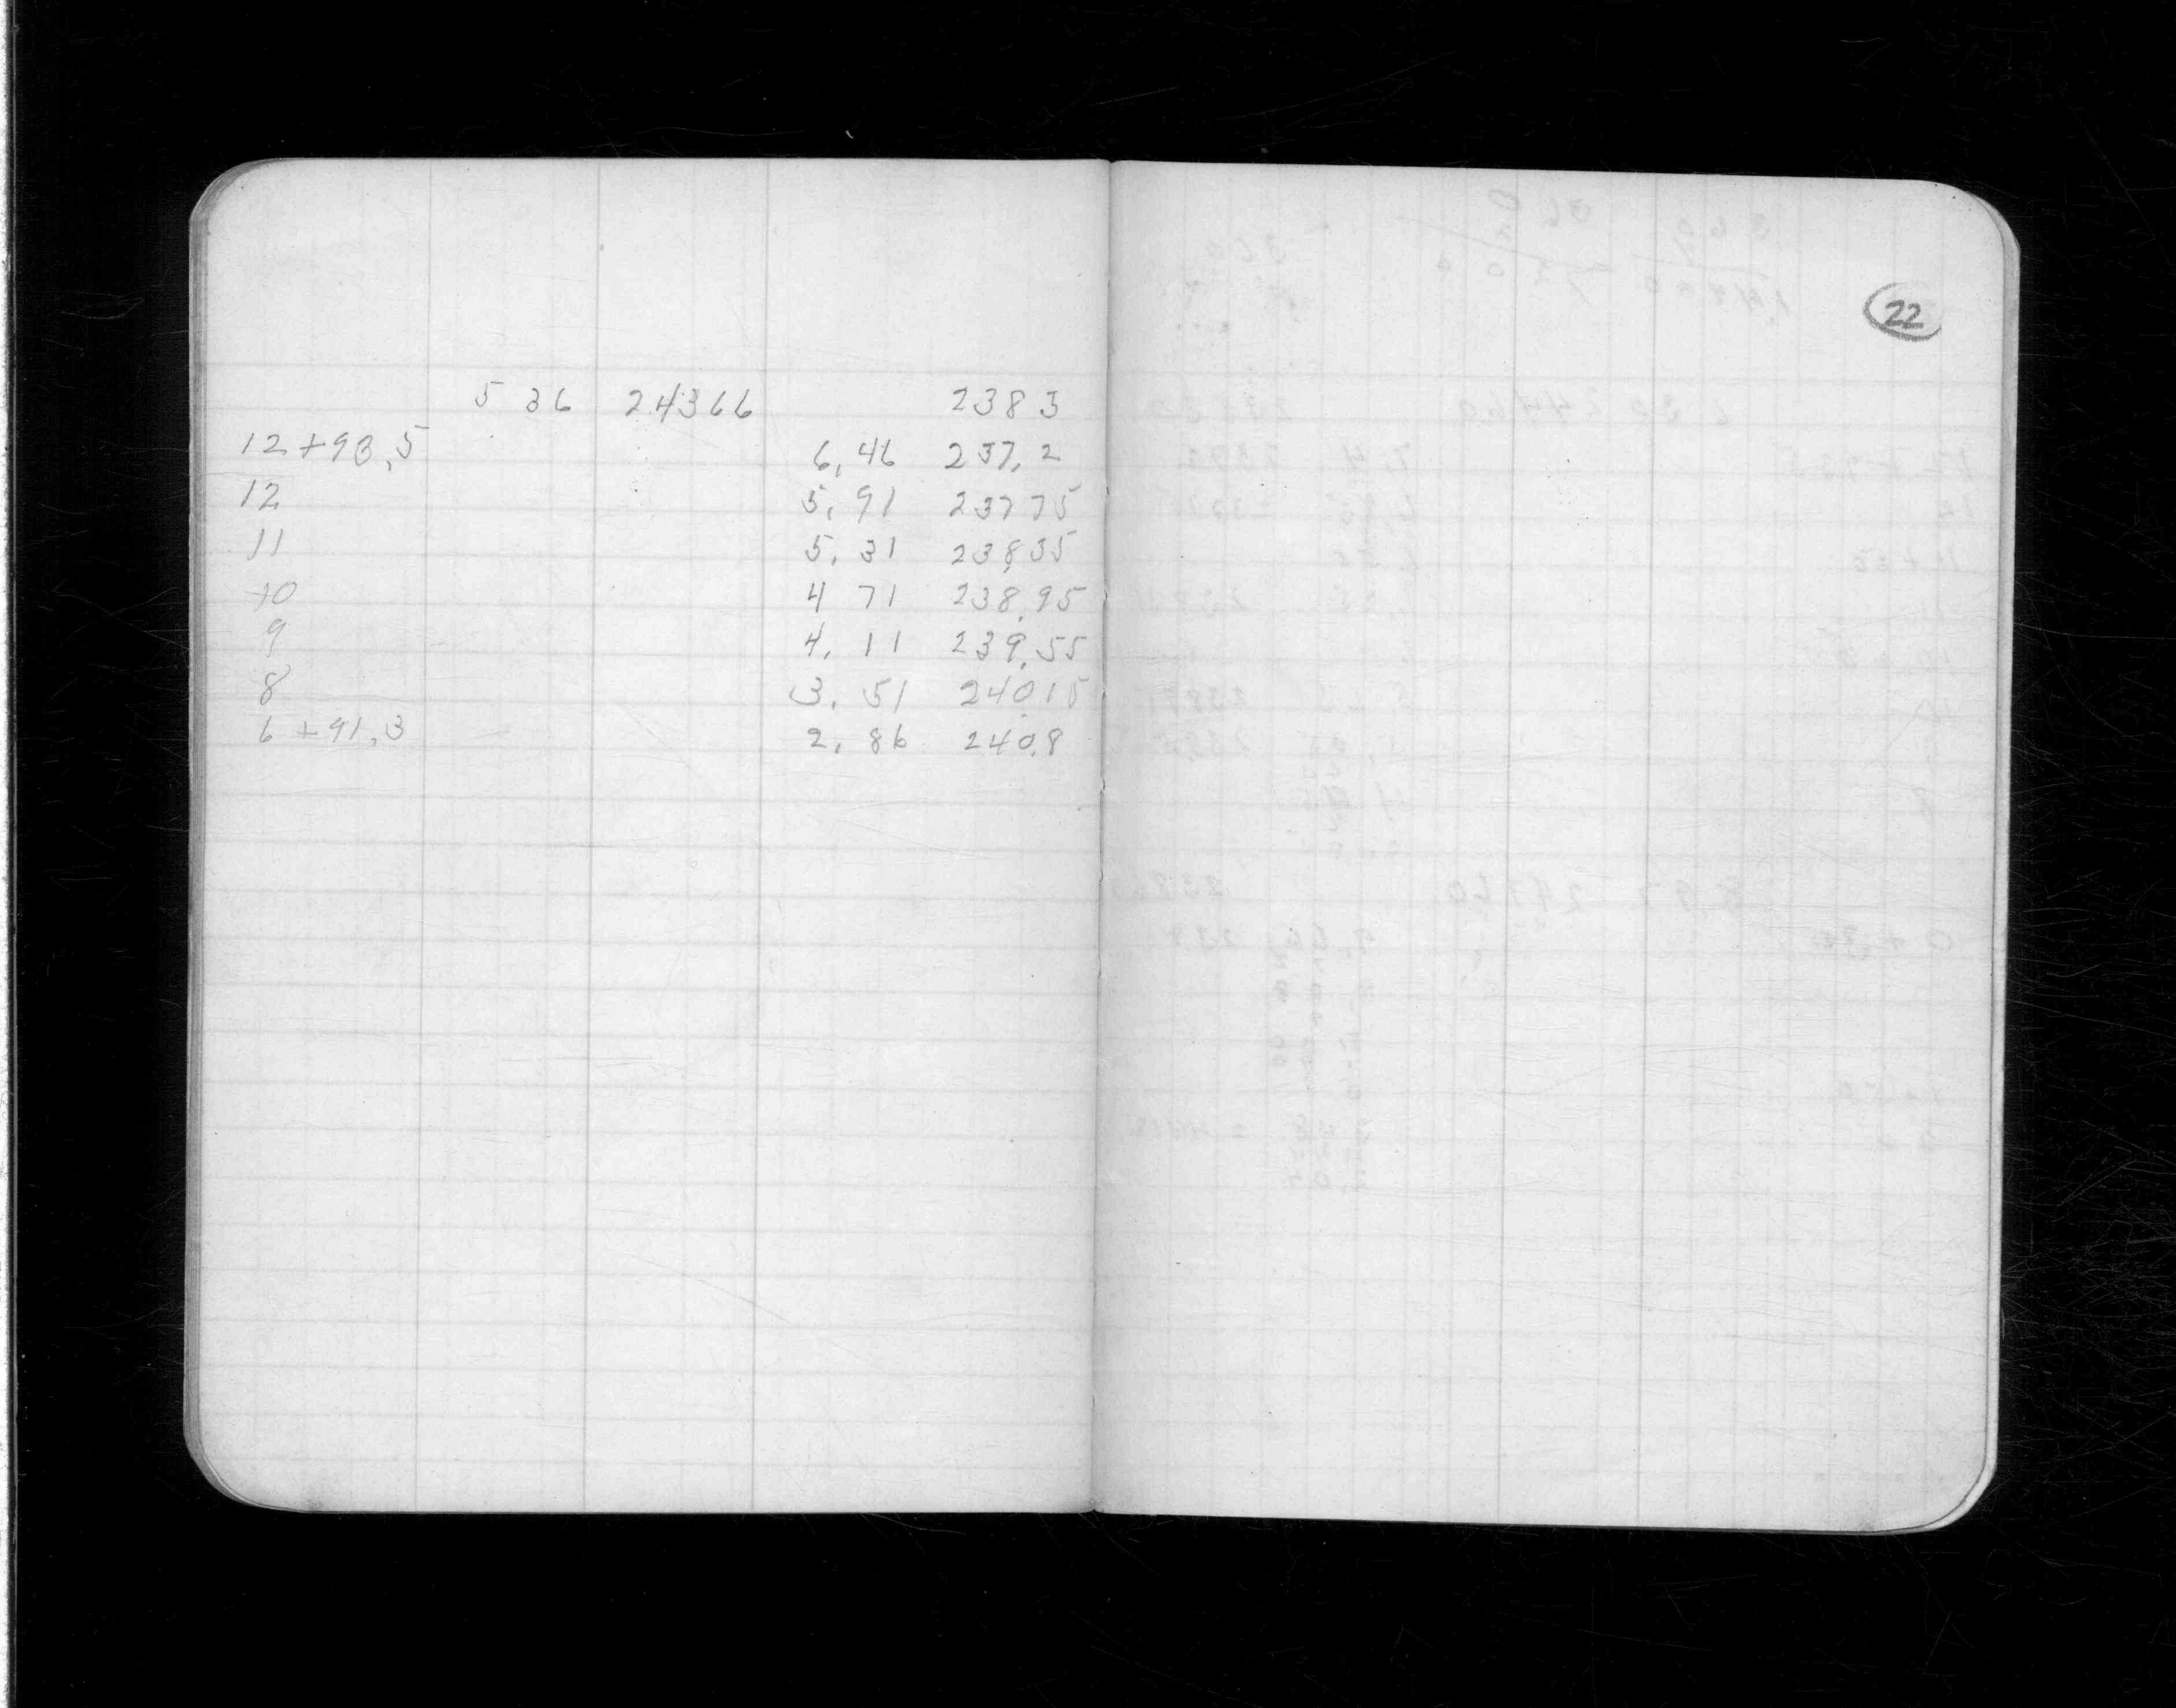 22
5 36 24366 2383
12+93,5 6,46 237,2
12 5,91 23775
11 5,31 238,35
10 4 71 238,95
9 4,11 239,55
8 3,51 240,15
6+91,3 2,86 240,8